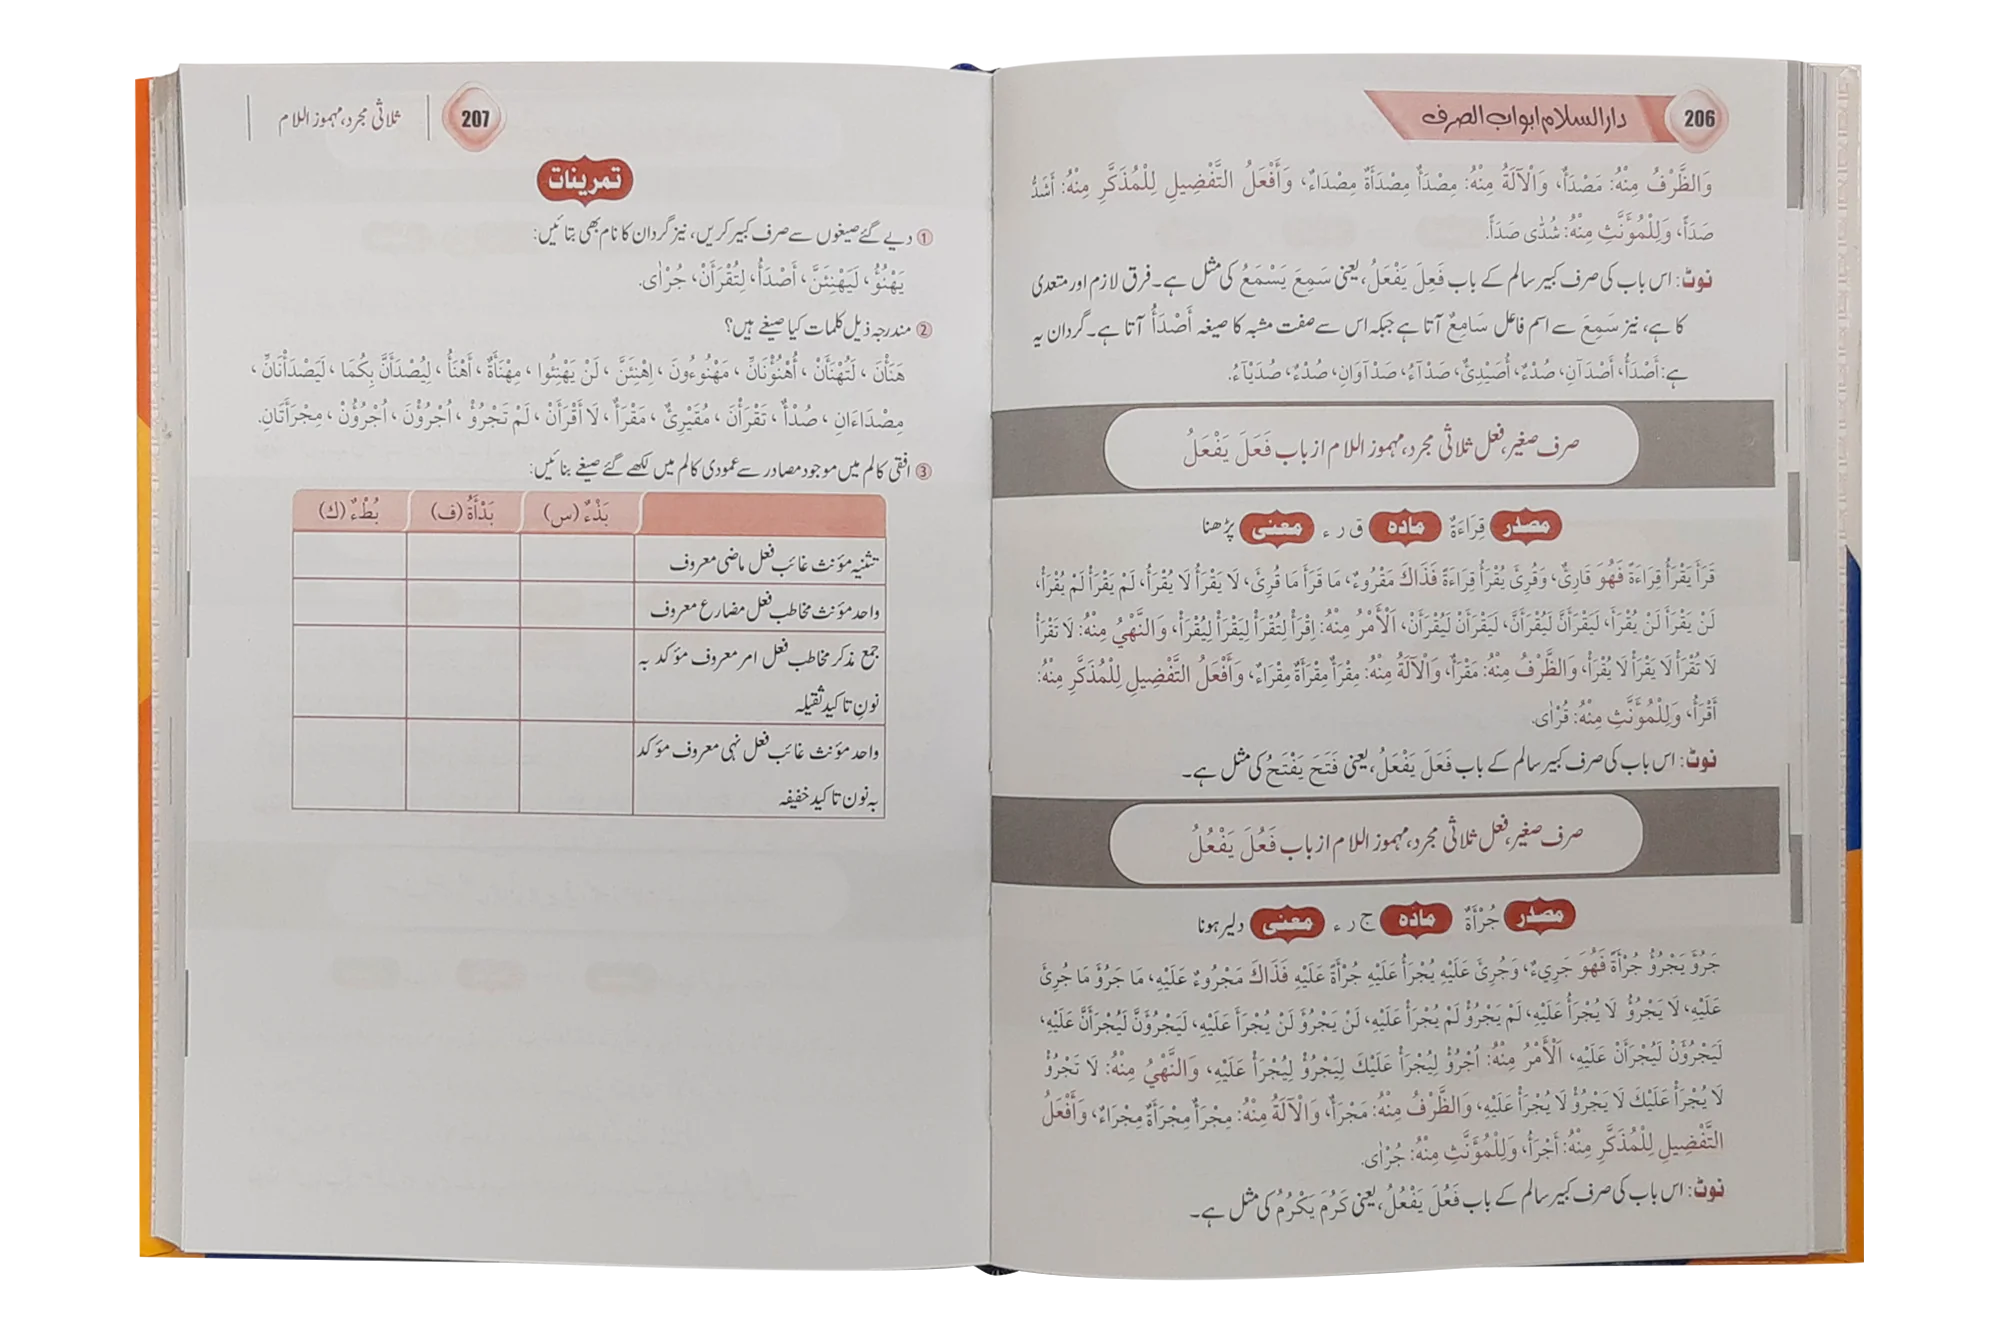 206
دارالسلام ابواب الصرف
وَالظَّرْفُ مِنْهُ: مَصْدَأٌ، وَالْآلَةُ مِنْهُ: مِصْدَأٌ مِصْدَأَةٌ مِصْدَاءٌ، وَأَفْعَلُ التَّفْضِيلِ لِلْمُذَكَّرِ مِنْهُ: أَشَدُّ
صَدَأً، وَلِلْمُؤَنَّثِ مِنْهُ: شُدّٰى صَدَأً.
نوٹ: اس باب کی صرف کبیر سالم کے باب فَعِلَ یَفْعَلُ، یعنی سَمِعَ یَسْمَعُ کی مثل ہے۔ فرق لازم اور متعدی
کا ہے، نیز سَمِعَ سے اسم فاعل سَامِعٌ آتا ہے جبکہ اس سے صفت مشبہ کا صیغہ أَصْدَأُ آتا ہے۔ گردان یہ
ہے: أَصْدَأُ، أَصْدَآنِ، صُدْءٌ، أُصَيْدِئُ، صَدْآءُ، صَدْآوَانِ، صُدْءٌ، صُدَيْآءُ.
صرف صغیر، فعل ثلاثی مجرد، مہموز اللام از باب فَعَلَ یَفْعَلُ
مصدر قِرَاءَةٌ مادہ ق ر ء معنی پڑھنا
قَرَأَ يَقْرَأُ قِرَاءَةً فَهُوَ قَارِئٌ، وَقُرِئَ يُقْرَأُ قِرَاءَةً فَذَاكَ مَقْرُوءٌ، مَا قَرَأَ مَا قُرِئَ، لَا يَقْرَأُ لَا يُقْرَأُ، لَمْ يَقْرَأْ لَمْ يُقْرَأْ،
لَنْ يَقْرَأَ لَنْ يُقْرَأَ، لَيَقْرَأَنَّ لَيُقْرَأَنَّ، لَيَقْرَأَنْ لَيُقْرَأَنْ، اَلْأَمْرُ مِنْهُ: اِقْرَأْ لِتُقْرَأْ لِيَقْرَأْ لِيُقْرَأْ، وَالنَّهْيُ مِنْهُ: لَا تَقْرَأْ
لَا تُقْرَأْ لَا يَقْرَأْ لَا يُقْرَأْ، وَالظَّرْفُ مِنْهُ: مَقْرَأٌ، وَالْآلَةُ مِنْهُ: مِقْرَأٌ مِقْرَأَةٌ مِقْرَاءٌ، وَأَفْعَلُ التَّفْضِيلِ لِلْمُذَكَّرِ مِنْهُ:
أَقْرَأُ، وَلِلْمُؤَنَّثِ مِنْهُ: قُرْاٰى.
نوٹ: اس باب کی صرف کبیر سالم کے باب فَعَلَ یَفْعَلُ، یعنی فَتَحَ یَفْتَحُ کی مثل ہے۔
صرف صغیر، فعل ثلاثی مجرد، مہموز اللام از باب فَعُلَ یَفْعُلُ
مصدر جُرْأَةٌ مادہ ج ر ء معنی دلیر ہونا
جَرُؤَ يَجْرُؤُ جُرْأَةً فَهُوَ جَرِيءٌ، وَجُرِئَ عَلَيْهِ يُجْرَأُ عَلَيْهِ جُرْأَةً عَلَيْهِ فَذَاكَ مَجْرُوءٌ عَلَيْهِ، مَا جَرُؤَ مَا جُرِئَ
عَلَيْهِ، لَا يَجْرُؤُ لَا يُجْرَأُ عَلَيْهِ، لَمْ يَجْرُؤْ لَمْ يُجْرَأْ عَلَيْهِ، لَنْ يَجْرُؤَ لَنْ يُجْرَأَ عَلَيْهِ، لَيَجْرُؤَنَّ لَيُجْرَأَنَّ عَلَيْهِ،
لَيَجْرُؤَنْ لَيُجْرَأَنْ عَلَيْهِ، اَلْأَمْرُ مِنْهُ: اُجْرُؤْ لِيُجْرَأْ عَلَيْكَ لِيَجْرُؤْ لِيُجْرَأْ عَلَيْهِ، وَالنَّهْيُ مِنْهُ: لَا تَجْرُؤْ
لَا يُجْرَأْ عَلَيْكَ لَا يَجْرُؤْ لَا يُجْرَأْ عَلَيْهِ، وَالظَّرْفُ مِنْهُ: مَجْرَأٌ، وَالْآلَةُ مِنْهُ: مِجْرَأٌ مِجْرَأَةٌ مِجْرَاءٌ، وَأَفْعَلُ
التَّفْضِيلِ لِلْمُذَكَّرِ مِنْهُ: أَجْرَأُ، وَلِلْمُؤَنَّثِ مِنْهُ: جُرْاٰى.
نوٹ: اس باب کی صرف کبیر سالم کے باب فَعُلَ یَفْعُلُ، یعنی کَرُمَ یَکْرُمُ کی مثل ہے۔
207
ثلاثی مجرد، مہموز اللام
تمرینات
① دیے گئے صیغوں سے صرف کبیر کریں، نیز گردان کا نام بھی بتائیں:
يَهْنُؤُ، لَيَهْنِئَنَّ، أَصْدَأُ، لِتُقْرَأَنْ، جُرْاٰى.
② مندرجہ ذیل کلمات کیا صیغے ہیں؟
هَنَأْنَ، لَتُهْنَأَنْ، أُهْنُؤْنَانِّ، مَهْنُوءُونَ، اِهْنِئَنَّ، لَنْ يَهْنِئُوا، مِهْنَأَةٌ، أَهْنَأُ، لِيُصْدَأَنَّ بِكُمَا، لَيَصْدَأْنَانِّ،
مِصْدَاءَانِ، صُدْأٌ، تَقْرَأْنَ، مُقَيْرِئٌ، مَقْرَأٌ، لَا أَقْرَأَنْ، لَمْ تَجْرُؤْ، اُجْرُؤْنَ، اُجْرُؤُنْ، مِجْرَأَتَانِ.
③ افقی کالم میں موجود مصادر سے عمودی کالم میں لکھے گئے صیغے بنائیں:
بَذْءٌ (س) بَدْأَةٌ (ف) بُطْءٌ (ك)
تثنیہ مؤنث غائب فعل ماضی معروف
واحد مؤنث مخاطب فعل مضارع معروف
جمع مذکر مخاطب فعل امر معروف مؤکد بہ
نونِ تاکید ثقیلہ
واحد مؤنث غائب فعل نہی معروف مؤکد
بہ نون تاکید خفیفہ